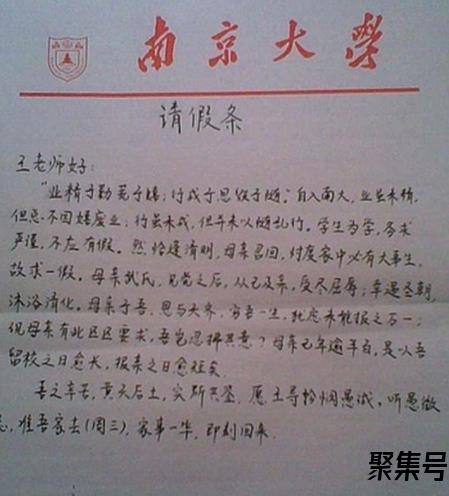 南京大學
请假条
王老师好:
“业精于勤荒于嬉;行成于思毁于随。”自入南大,业虽未精,
但忌不因嬉废业;行虽未成,但平未以随乱行。学生为学,务求
严谨,不应有假。然恰逢清明,母亲召回,忖度家中必有大事生,
故求一假。母亲氏,见党之后,从己及亲,受尽屈辱;幸遇圣朝,
沐浴清化。母亲于吾,恩与天齐,穷吾一生,犹不能报之万一;
侃母亲有此区区要求,吾岂忍拂其意?母亲已年逾半百,是以吾
留校之日愈长,报亲之日愈短矣
吾之辛苦,黄天后土,实所共鉴,愿王导矜悯愚诚,听愚微
志,准吾家去(周三),家事一毕,即刻回来.
聚集号